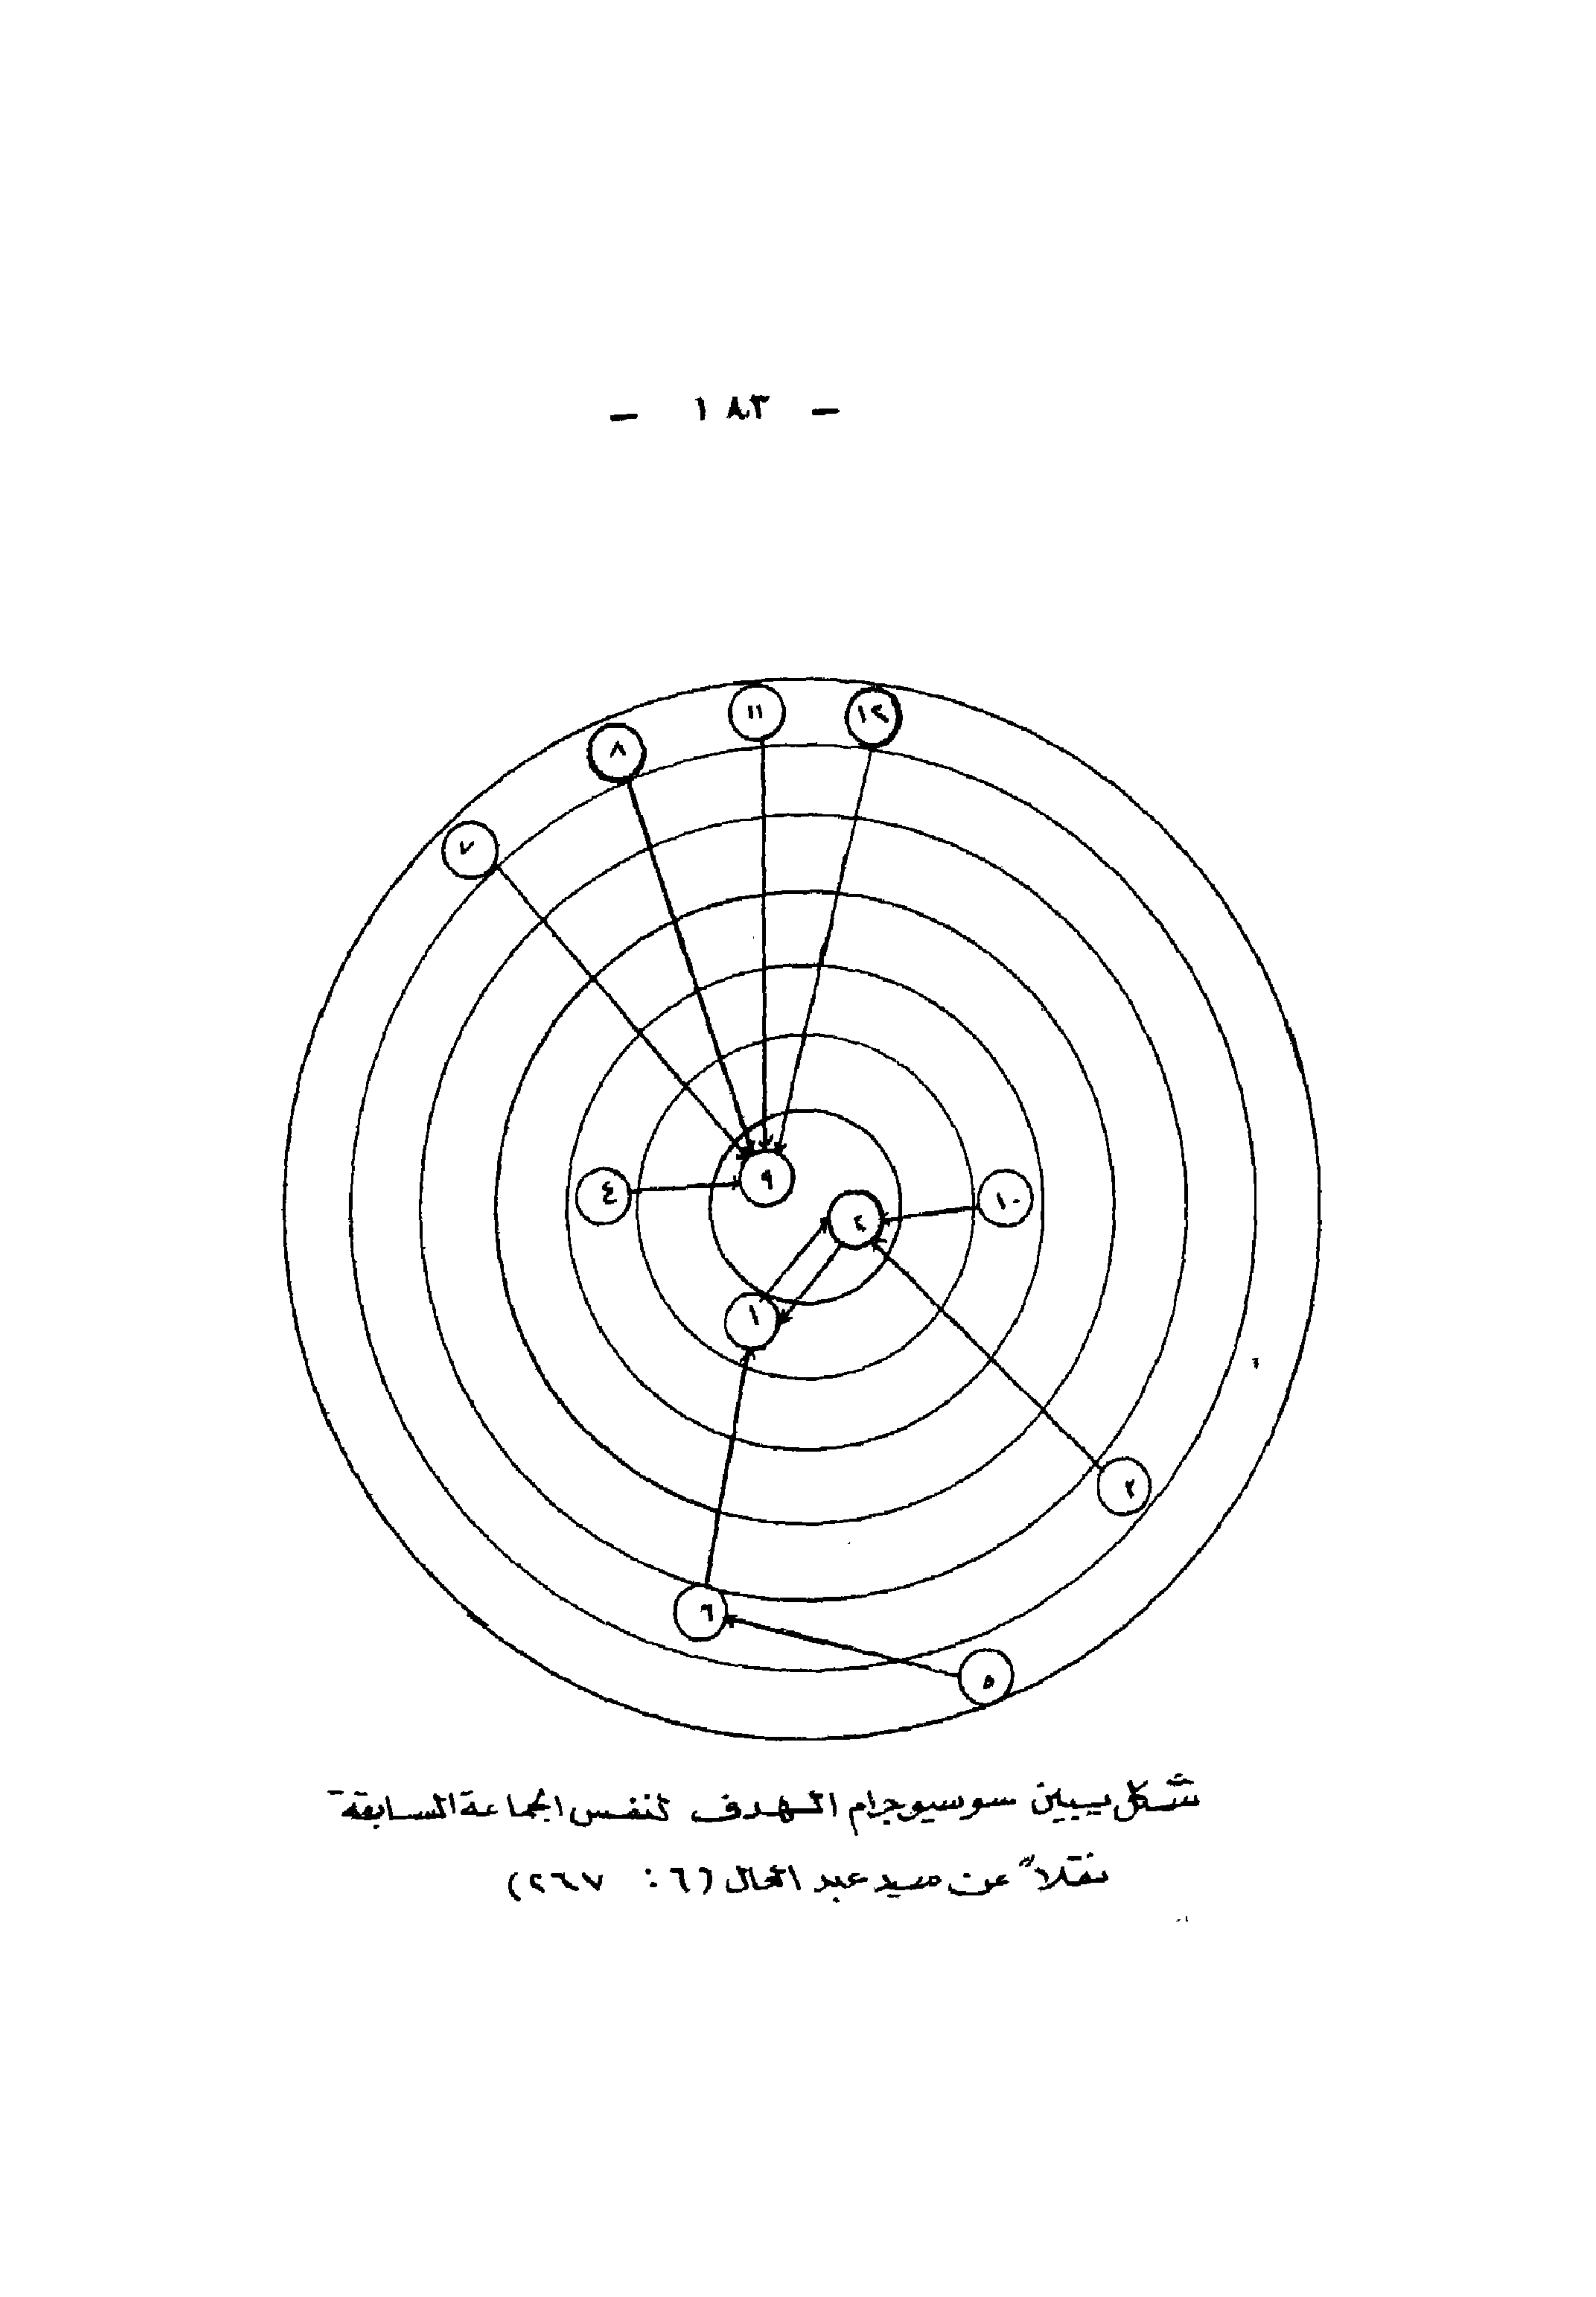 - ١٨٣ -
١٢
١١
٨
٧
٩
٤
١٠
٢
١
٣
٦
٥
شكل يبين سوسيوجرام الهدف لنفس الجماعة السابقة
نقلاً عن سيد عبد العال (٦ : ٢٦٧)